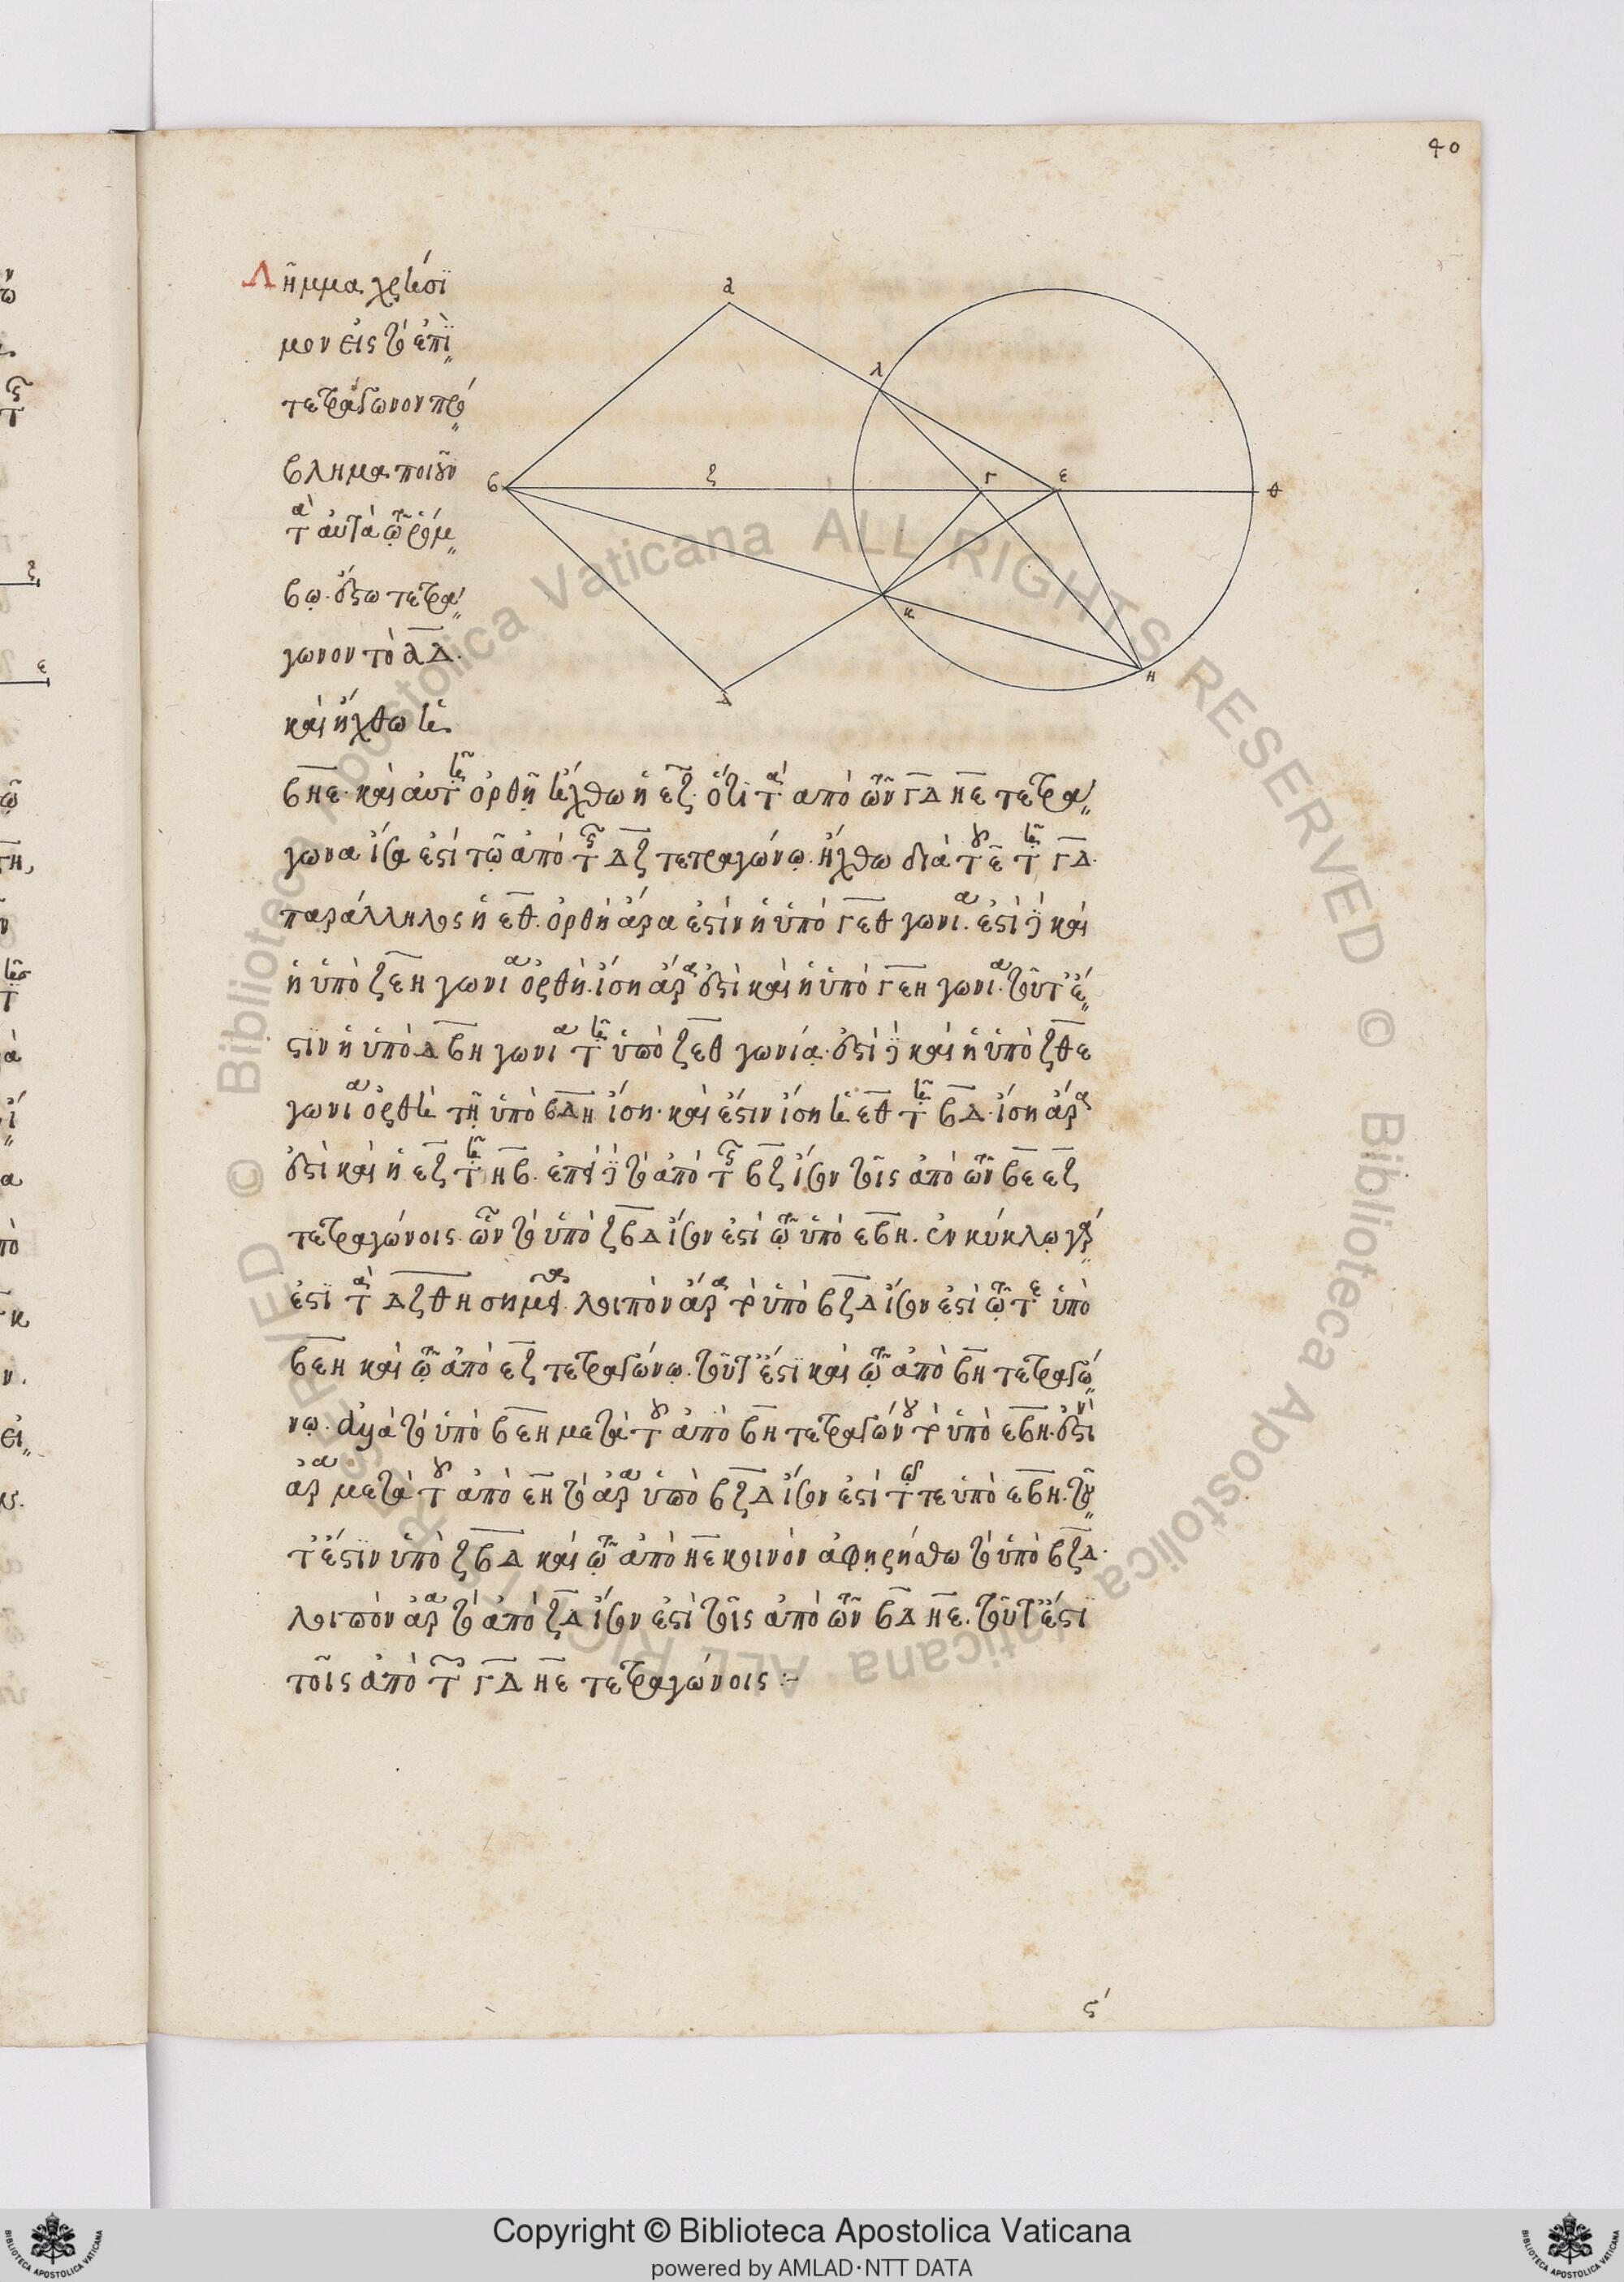 40
Λῆμμα χρήσι
μον εἰς τὸ ἐπὶ
τετραγώνων πρό
βλημα ποιοῦν
τὰ αὐτὰ τῷ ῥόμ
βῳ. ἔστω τετρά
γωνον τὸ ΑΔ.
καὶ ἤχθω ἡ
ΒΗΕ. καὶ αὐτῇ ὀρθὴ ἤχθω ἡ ΕΖ. ὅτι τὰ ἀπὸ τῶν ΓΔ ΗΕ τετρά
γωνα ἴσα ἐστὶ τῷ ἀπὸ τῆς ΔΖ τετραγώνῳ. ἤχθω διὰ τοῦ Ε τῇ ΓΔ.
παράλληλος ἡ ΕΘ. ὀρθὴ ἄρα ἐστὶν ἡ ὑπὸ ΓΕΘ γωνία. ἐστὶ δὲ καὶ
ἡ ὑπὸ ΖΕΗ γωνία ὀρθή. ἴση ἄρα ἐστὶ καὶ ἡ ὑπὸ ΓΕΗ γωνία. τουτέ
στιν ἡ ὑπὸ ΔΒΗ γωνία τῇ ὑπὸ ΖΕΘ γωνίᾳ. ἐστὶ δὲ καὶ ἡ ὑπὸ ΖΘΕ
γωνία ὀρθὴ τῇ ὑπὸ ΒΔΗ ἴση. καὶ ἔστιν ἴση ἡ ΕΘ τῇ ΒΔ. ἴση ἄρα
ἐστὶ καὶ ἡ ΕΖ τῇ ΗΒ. ἐπεὶ δὲ τὸ ἀπὸ τῆς ΒΖ ἴσον τοῖς ἀπὸ τῶν ΒΕ ΕΖ
τετραγώνοις. ὧν τὸ ὑπὸ ΖΒΔ ἴσον ἐστὶ τῷ ὑπὸ ΕΒΗ. ἐν κύκλῳ γάρ
ἐστι τὰ ΔΖΘΗ σημεῖα. λοιπὸν ἄρα τὸ ὑπὸ ΒΖΔ ἴσον ἐστὶ τῷ τε ὑπὸ
ΒΕΗ καὶ τῷ ἀπὸ ΕΖ τετραγώνῳ. τουτέστι καὶ τῷ ἀπὸ ΒΗ τετραγώ
νῳ. ἀλλὰ τὸ ὑπὸ ΒΕΗ μετὰ τοῦ ἀπὸ ΒΗ τετραγώνου τὸ ὑπὸ ΕΒΗ. ἐστὶν
ἄρα μετὰ τοῦ ἀπὸ ΕΗ τὸ ἄρα ὑπὸ ΒΖΔ ἴσον ἐστὶ τῷ τε ὑπὸ ΕΒΗ. του
τέστιν ὑπὸ ΖΒΔ καὶ τῷ ἀπὸ ΗΕ κοινὸν ἀφῃρήσθω τὸ ὑπὸ ΒΖΔ.
λοιπὸν ἄρα τὸ ἀπὸ ΖΔ ἴσον ἐστὶ τοῖς ἀπὸ τῶν ΒΔ ΗΕ. τουτέστι
τοῖς ἀπὸ τῶν ΓΔ ΗΕ τετραγώνοις :-
α
λ
β
ζ
Γ
ε
θ
κ
Η
Δ
ϛ´
Copyright © Biblioteca Apostolica Vaticana
powered by AMLAD·NTT DATA